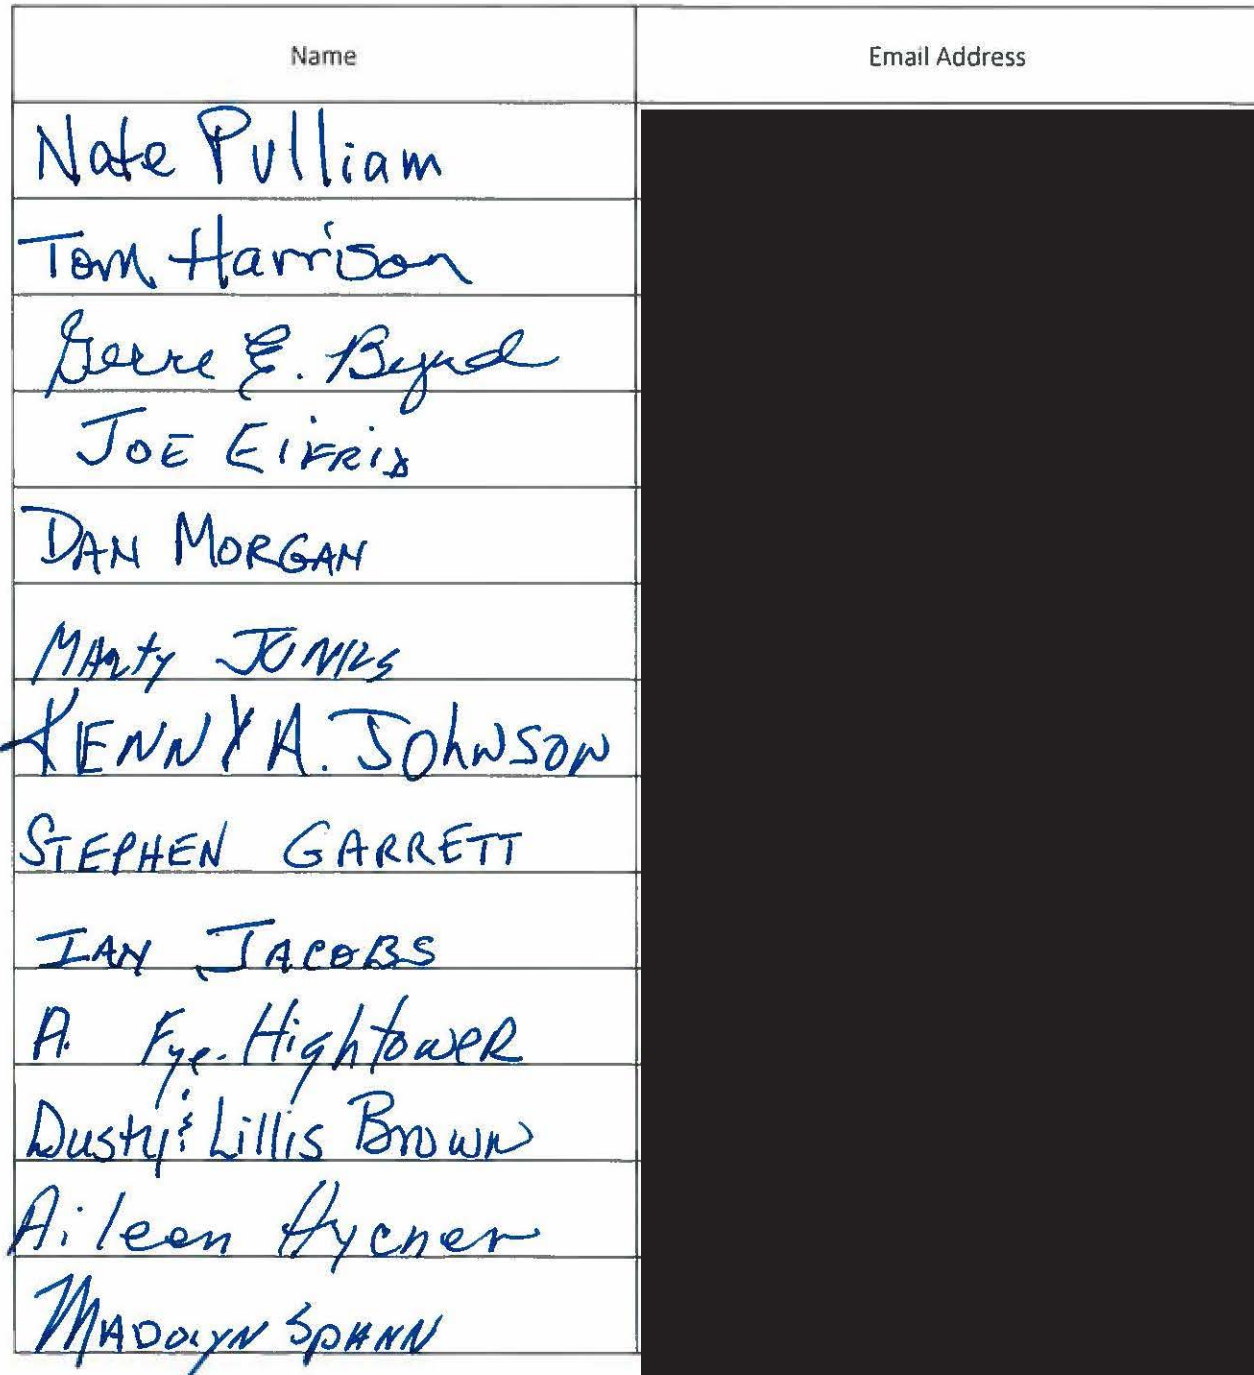 Name Email Address
Nate Pulliam
Tom Harrison
E. Byrd
JOE EIFRID
DAN MORGAN
MARTY
KENNY A. JOhNSON
STEPHEN GARRETT
IAN JACOBS
A. Fye-HightoweR
Dusty & Lillis Brown
Aileen Hycner
MADOLYN SPANN